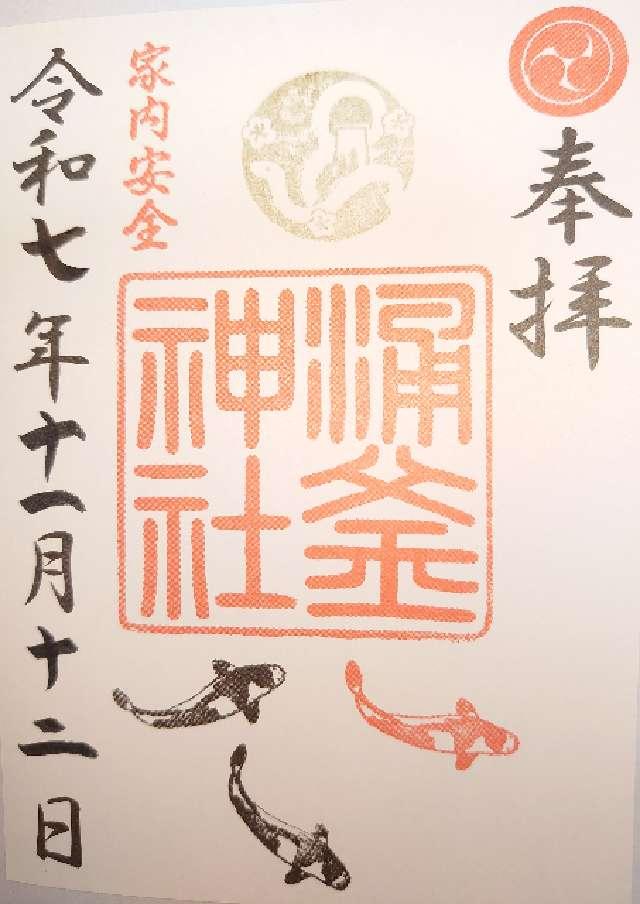 奉拝
涌釜
神社
家内安全
令和七年十一月十二日